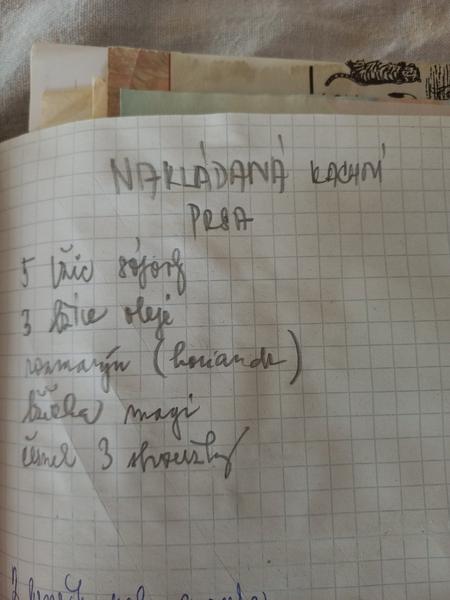 NAKLÁDANÁ KACHNÍ
PRSA
5 lžic sójovky
3 lžíce oleje
rozmarýn (koriandr)
lžička magi
česnek 3 stroužky